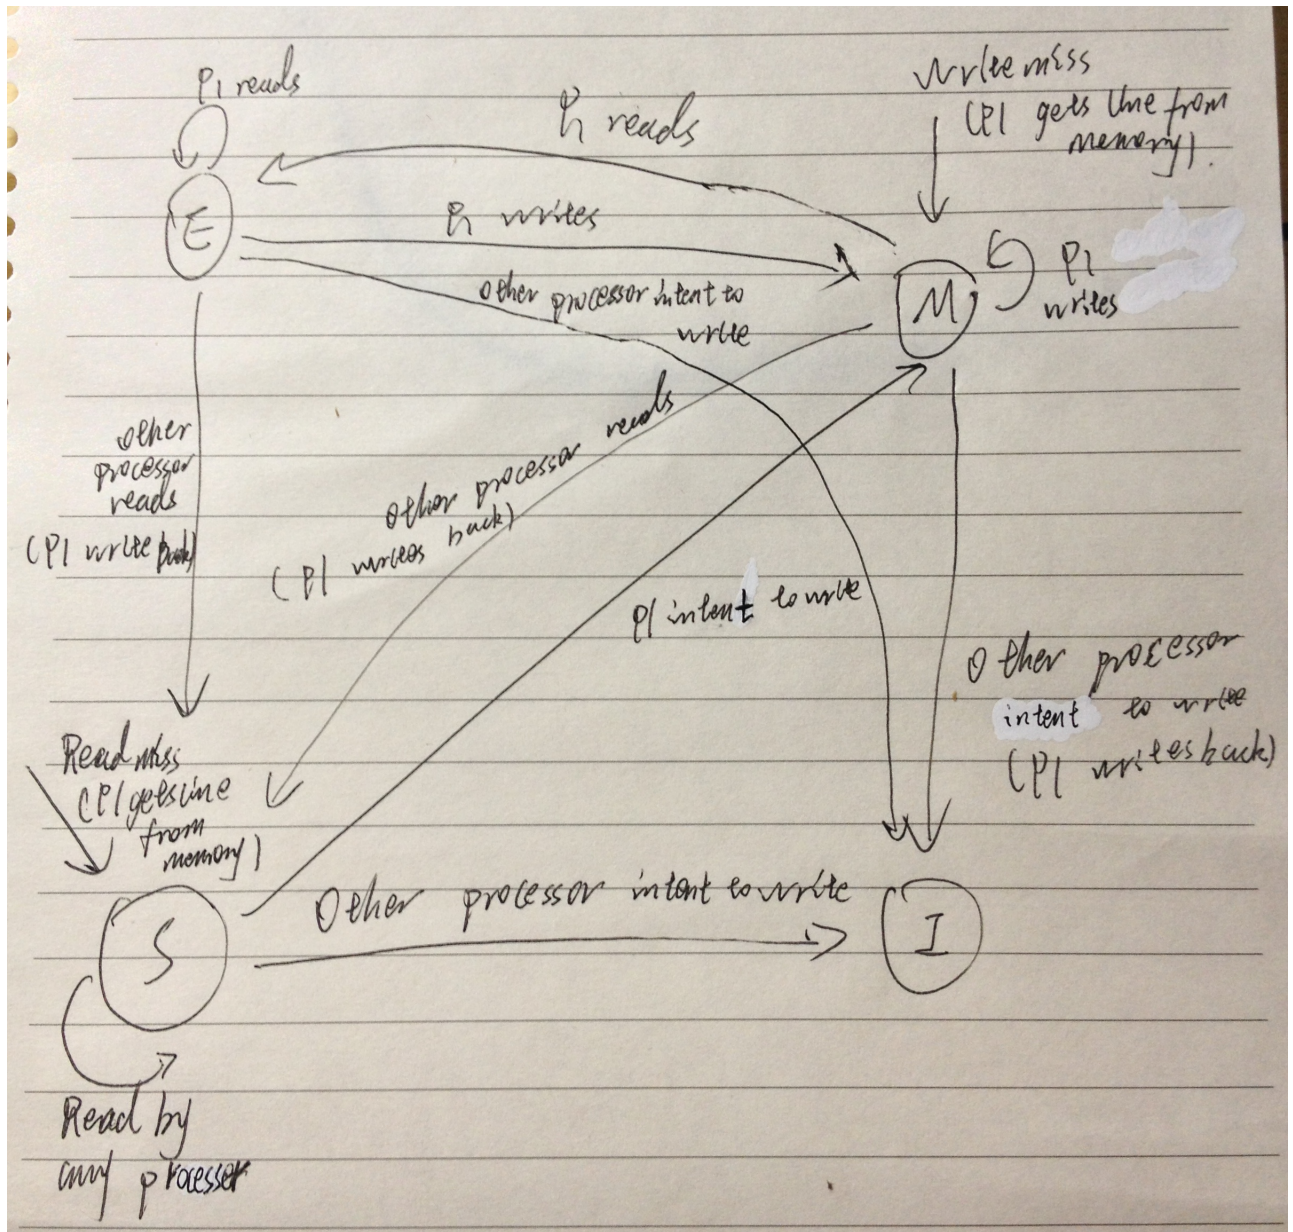 P1 reads
E
P1 reads
P1 writes
Other processor intent to
write
Write miss
(P1 gets line from
memory).
M
P1
writes
Other
processor
reads
(P1 write back)
Other processor reads
(P1 writes back)
P1 intent to write
Other processor
intent to write
(P1 writes back)
Read miss
(P1 gets line
from
memory)
S
Other processor intent to write
I
Read by
any processer